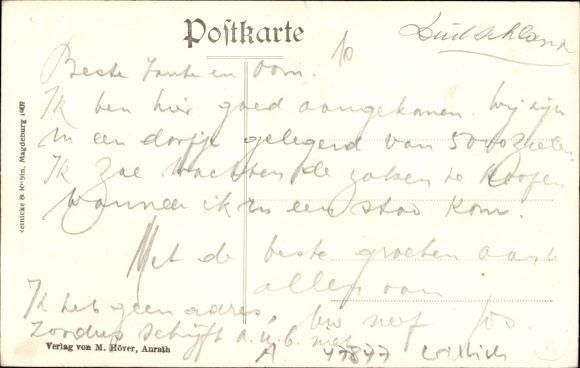 Postkarte
Duitschland
Beste Tante en Oom.
Ik ben hier goed aangekomen. Wij zijn
in een dorpje gelegerd van 5000 zielen
Ik zal trachten de zaken te koopen
wanneer ik in een stad kom.
Met de beste groeten aan
allen van
Ik heb geen adres, uw neef Jos.
Zoodus schrijft a.u.b. niet
Verlag von M. Höver, Anrath
47877 Willich
Magdeburg 1907